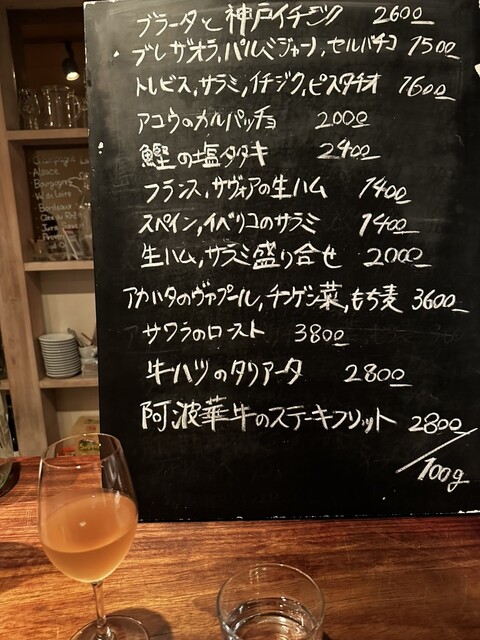 ブラータと神戸イチジク 2600
ブレザオラ,パルミジャーノ,セルバチコ 1500
トレビス,サラミ,イチジク,ピスタチオ 1600
アコウのカルパッチョ 2000
鰹の塩タタキ 2400
フランス,サヴォアの生ハム 1400
スペイン,イベリコのサラミ 1400
生ハム,サラミ盛り合せ 2000
アカハタのヴァプール,チンゲン菜,もち麦 3600
サワラのロースト 3800
牛ハツのタリアータ 2800
阿波華牛のステーキフリット 2800
/100g
Champagne
Alsace
Bourgogne
Bordeaux